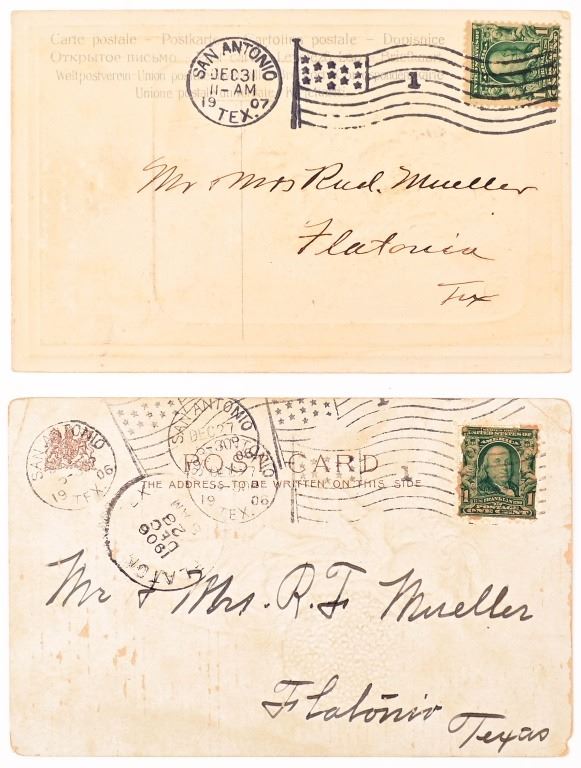 Carte postale - Postkarte - Cartolina postale - Dopisnice
SAN ANTONIO
DEC 31
11-AM
19 07
TEX.
1
1
Открытое письмо
Weltpostverein Union
Union postale
Mr & Mrs Rud. Mueller
Flatonia
Tex
SAN ANTONIO
DEC 27
-30P
19 06
TEX.
1
SAN ANTONIO
19 06
TEX.
UNITED STATES OF
AMERICA
FRANKLIN
1 1
POSTAGE
ONE CENT
POST CARD
THE ADDRESS TO BE WRITTEN ON THIS SIDE
DEC
1906
Mr & Mrs. R. F. Mueller
Flatonia
Texas